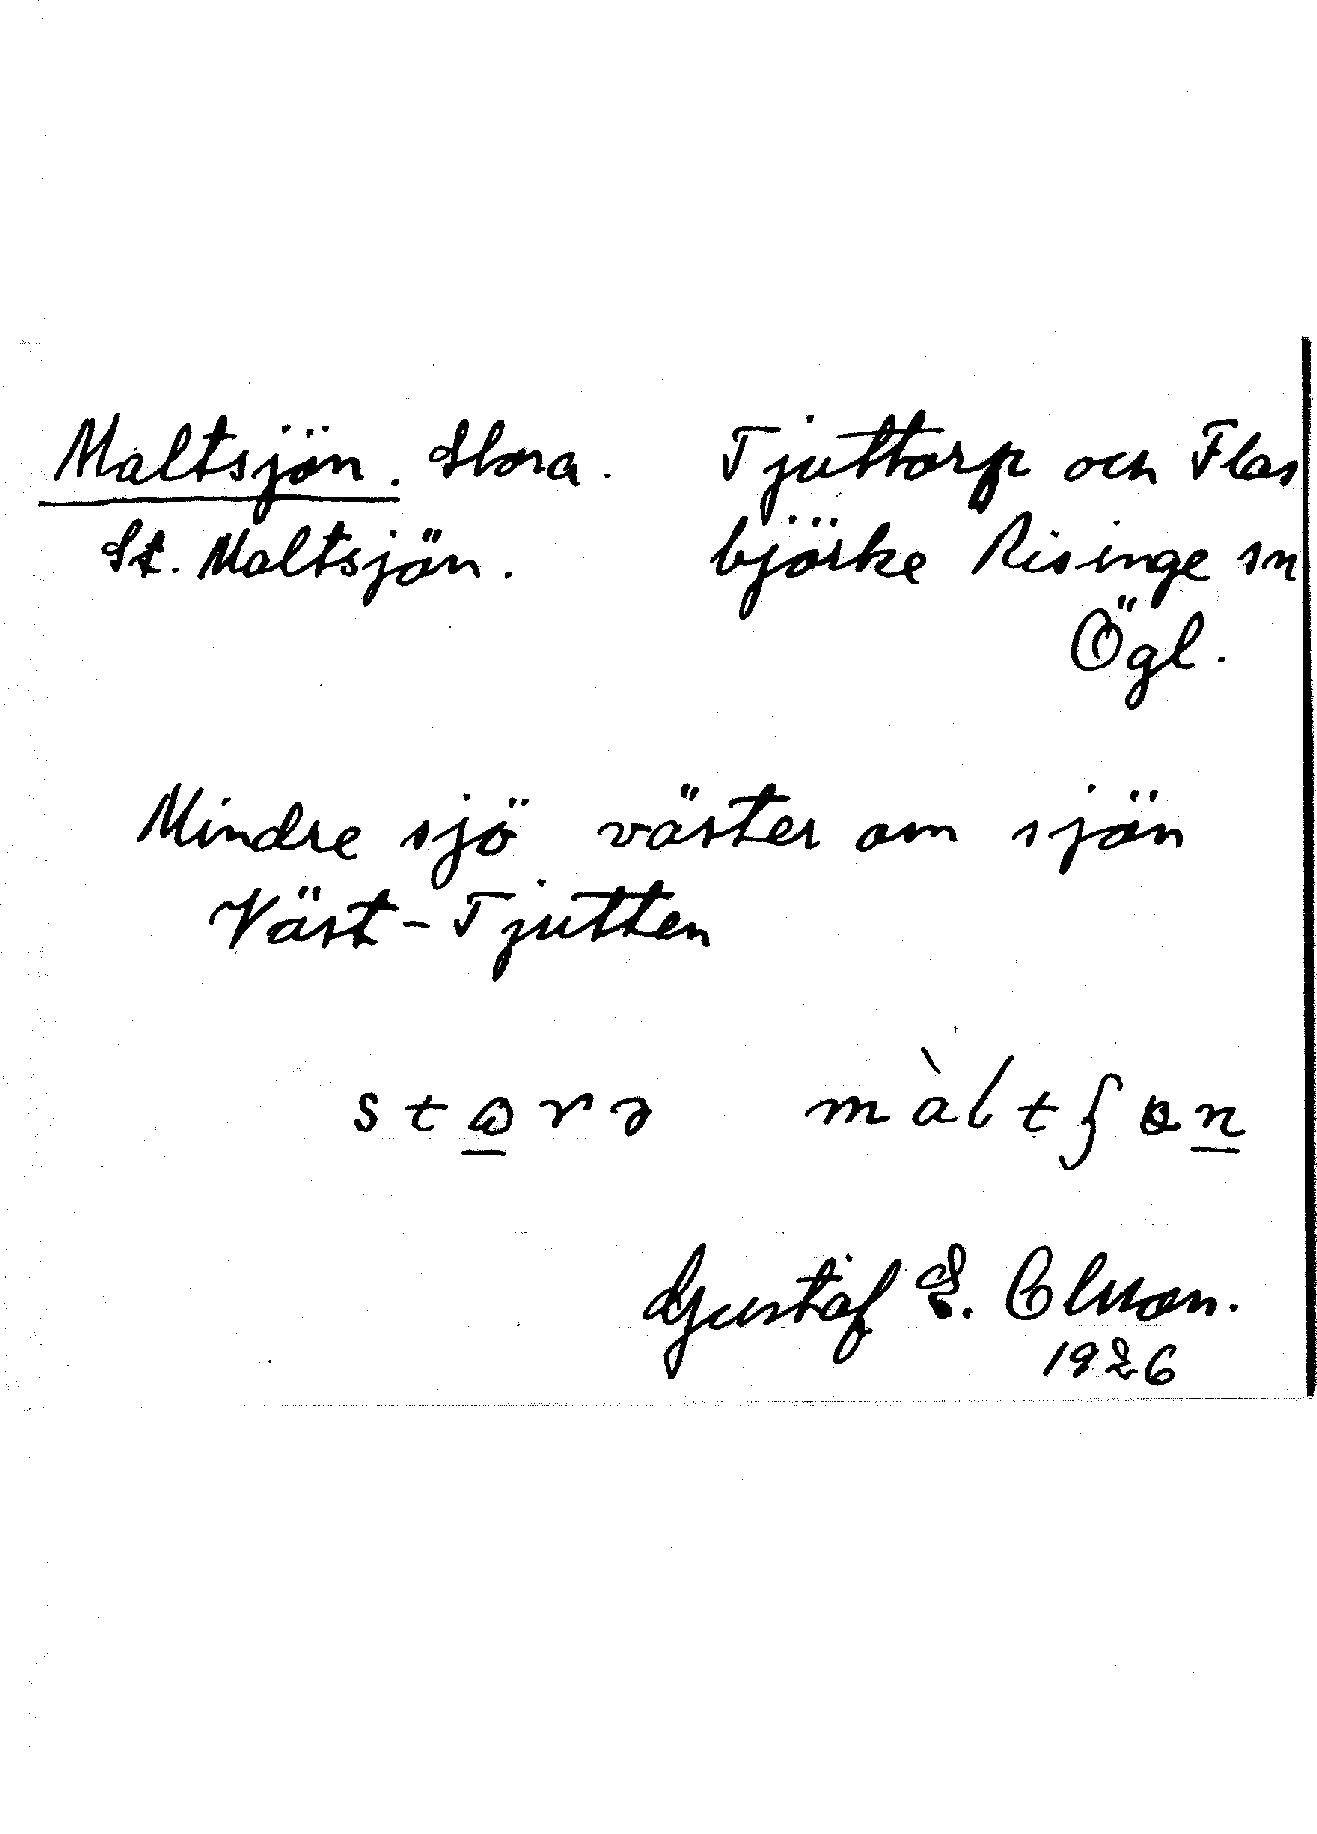 Maltsjön. Stora. Tjuttorp och Flas
St. Maltsjön. björke Risinge sn
Ögl.
Mindre sjö väster om sjön
Väst-Tjutten
Gustaf E. Olsson.
1926